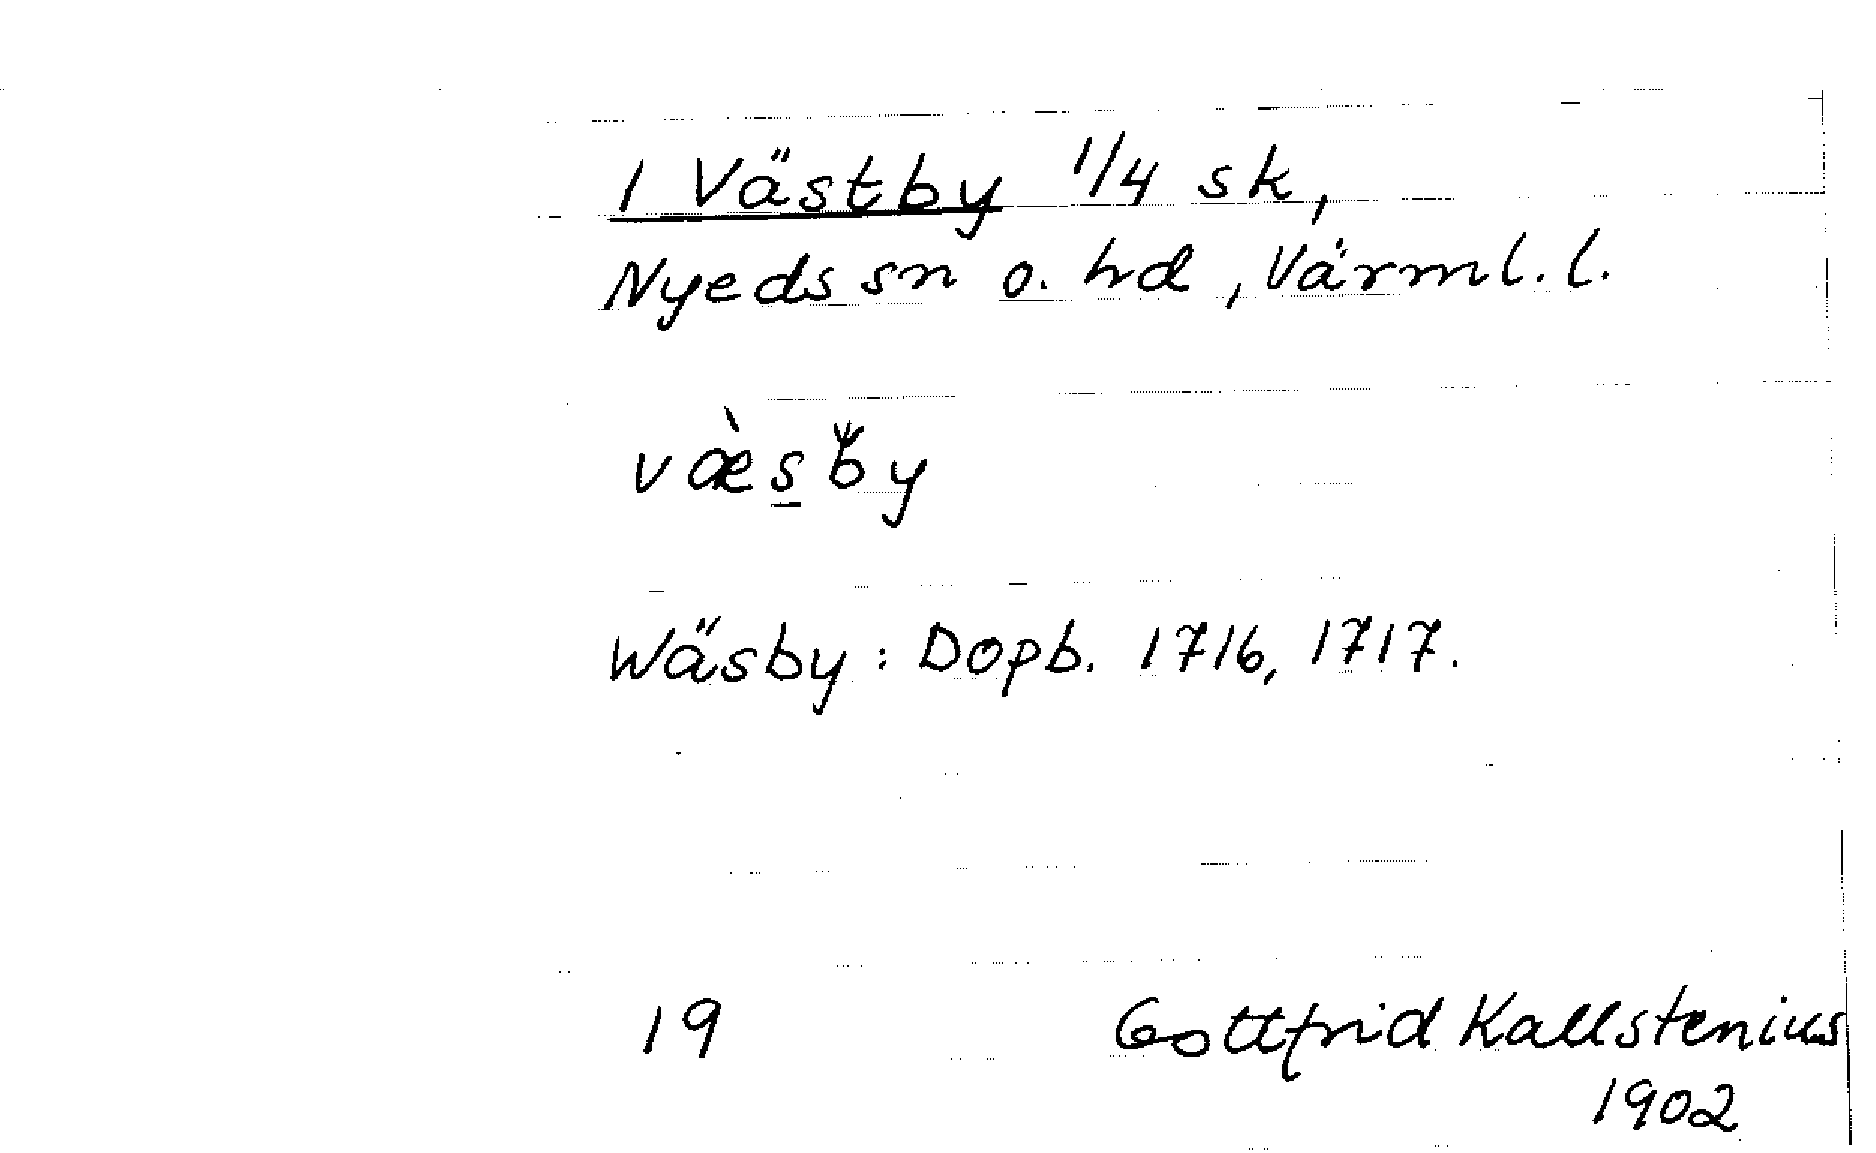 1 Västby 1/4 sk,
Nyeds sn o. hd, Värml. l.
væ̀s̲by
Wäsby: Dopb. 1716, 1717.
19 Gottfrid Kallstenius
1902